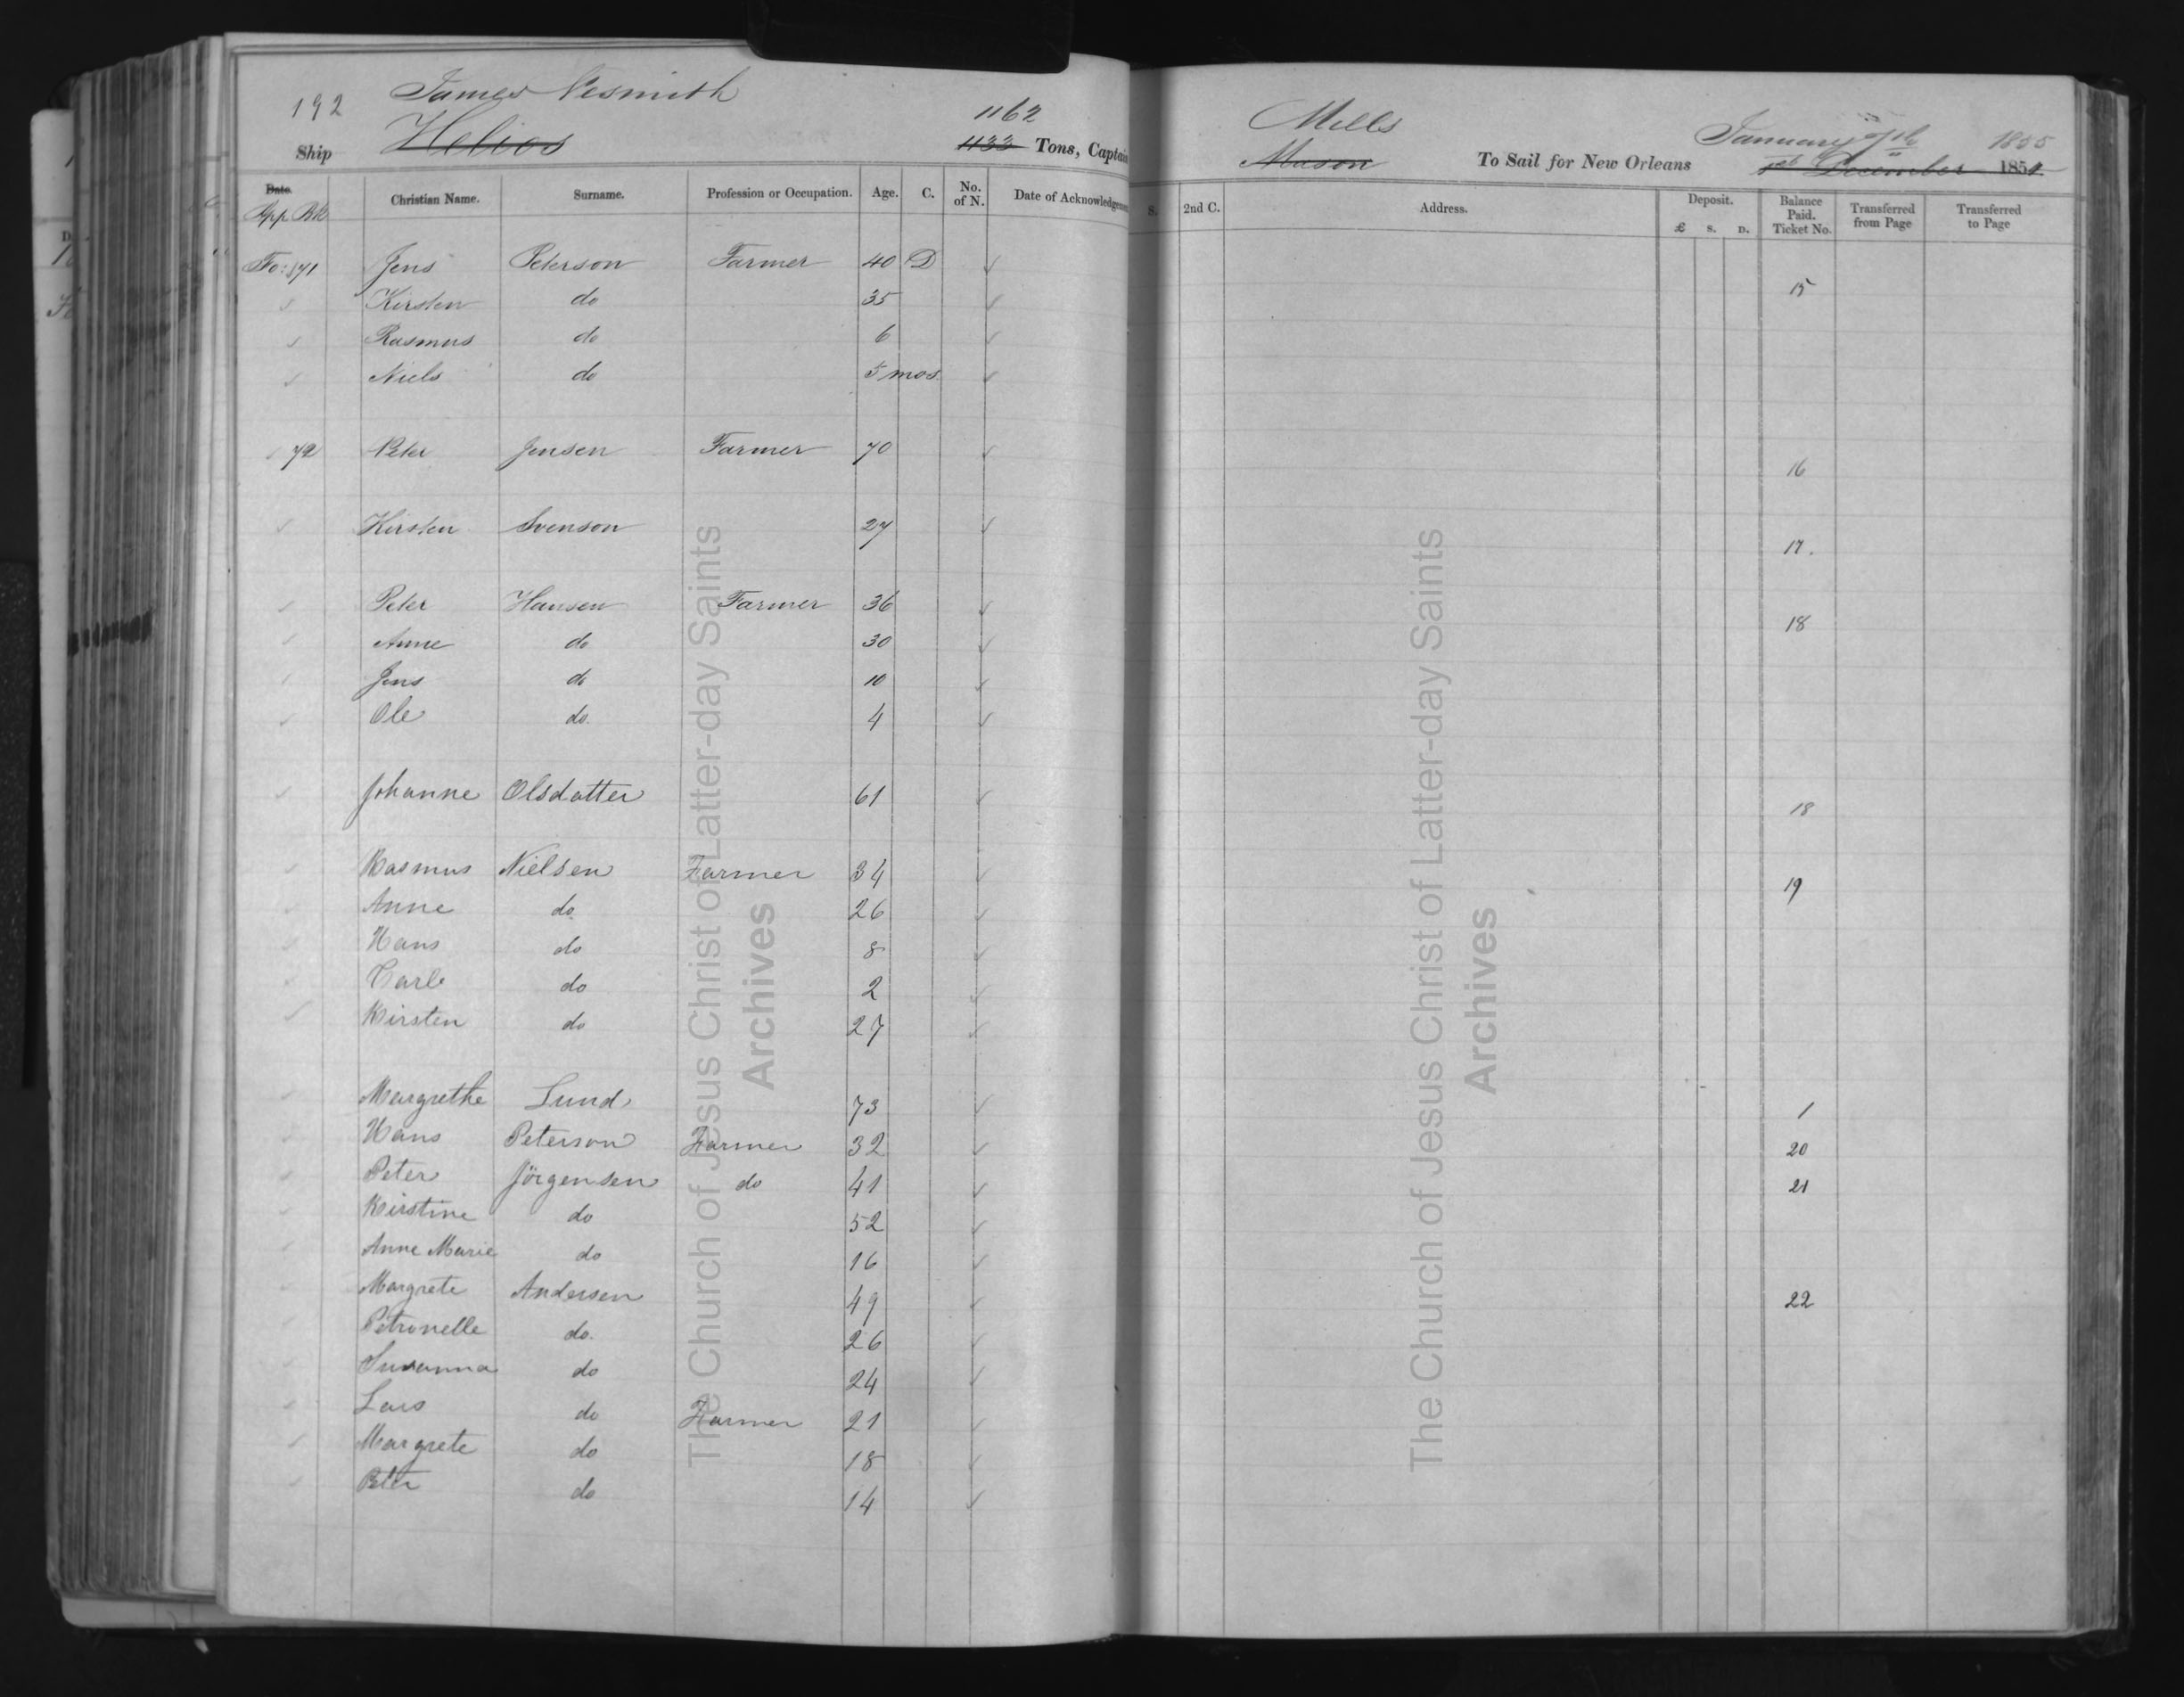 192 James Nesmith 1162 Mills January 7th 1855
Ship Helios 1133 Tons, Captain Mason To Sail for New Orleans 1st December 1854
Date. Christian Name. Surname. Profession or Occupation. Age. C. No. of N. Date of Acknowledgement S. 2nd C. Address. Deposit. £ S. D. Balance Paid. Ticket No. Transferred from Page Transferred to Page
App. Bk
Fo: 371 Jens Peterson Farmer 40 D 15
Kirsten do 35
Rasmus do 6
Niels do 5 mos.
72 Peter Jensen Farmer 70 16
Kirsten Svenson 27 17.
Peter Hansen Farmer 36 18
Anne do 30
Jens do 10
Ole do. 4
Johanne Olsdatter 61 18
Rasmus Nielsen Farmer 34 19
Anne do. 26
Hans do 8
Carle do 2
Kirsten do 27
Margrethe Lund 73 1
Hans Peterson Farmer 32 20
Peter Jörgensen do 41 21
Kirstine do 52
Anne Marie do 16
Margrete Andersen 49 22
Petronelle do. 26
Susanna do 24
Lars do Farmer 21
Margrete do 18
Peter do 14
The Church of Jesus Christ of Latter-day Saints
Archives
The Church of Jesus Christ of Latter-day Saints
Archives